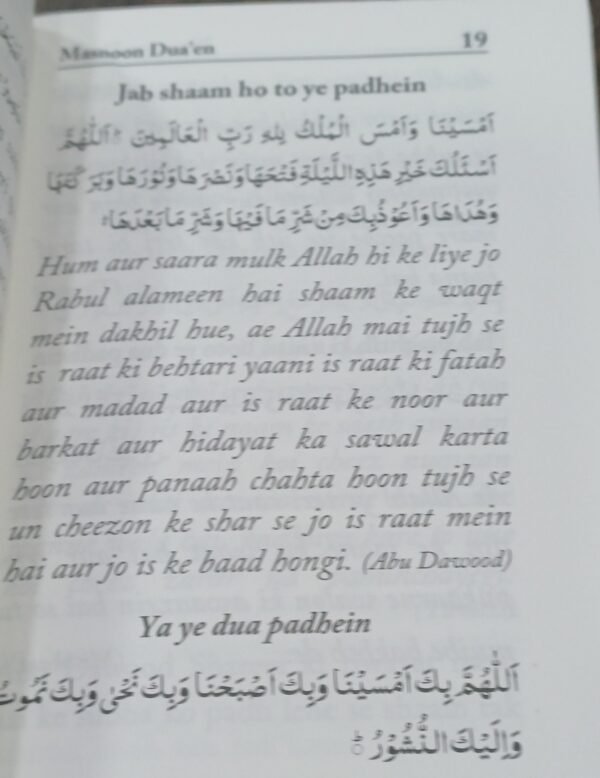 Masnoon Dua'en 19
Jab shaam ho to ye padhein
اَمْسَيْنَا وَاَمْسَ الْمُلْكُ لِلّٰهِ رَبِّ الْعَالَمِيْنَ ۞ اَللّٰهُمَّ
اَسْئَلُكَ خَيْرَ هٰذِهِ اللَّيْلَةِ فَتْحَهَا وَنَصْرَهَا وَنُوْرَهَا وَبَرَكَتَهَا
وَهُدَاهَا وَاَعُوْذُبِكَ مِنْ شَرِّ مَا فِيْهَا وَشَرِّ مَا بَعْدَهَا
Hum aur saara mulk Allah hi ke liye jo
Rabul alameen hai shaam ke waqt
mein dakhil hue, ae Allah mai tujh se
is raat ki behtari yaani is raat ki fatah
aur madad aur is raat ke noor aur
barkat aur hidayat ka sawal karta
hoon aur panaah chahta hoon tujh se
un cheezon ke shar se jo is raat mein
hai aur jo is ke baad hongi. (Abu Dawood)
Ya ye dua padhein
اَللّٰهُمَّ بِكَ اَمْسَيْنَا وَبِكَ اَصْبَحْنَا وَبِكَ نَحْىٰ وَبِكَ نَمُوْتُ
وَاِلَيْكَ النُّشُوْرُ